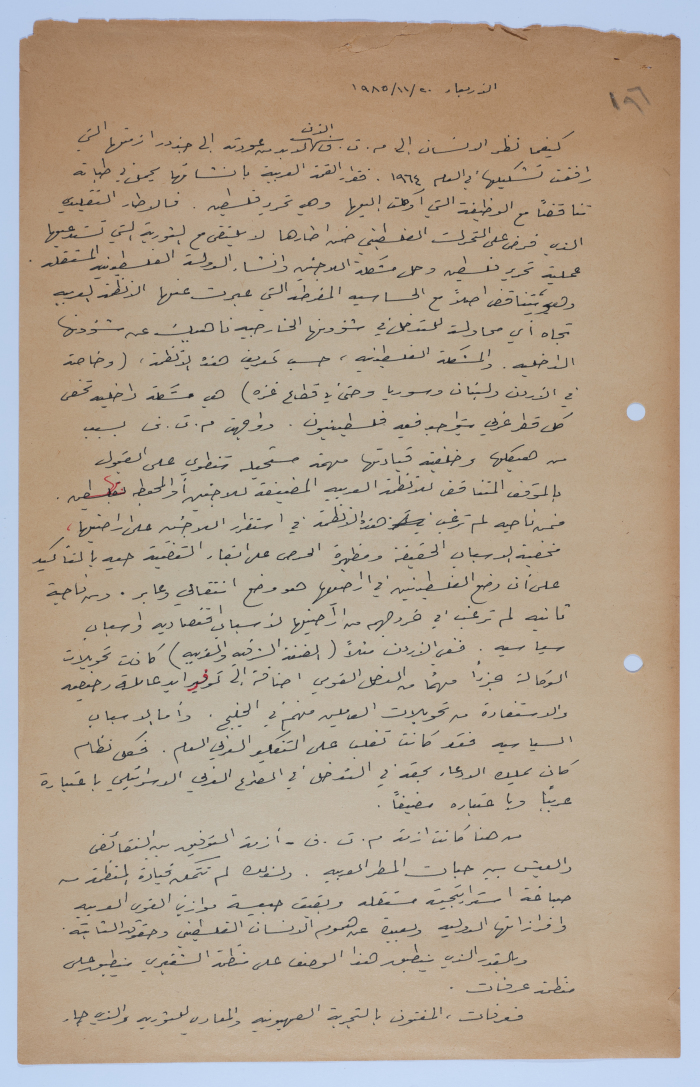 ١٩٦
الاربعاء ٢٠/١١/١٩٨٥
كيفما نظر الانسان إلى م.ت.ف الآن لا بد من عودته إلى جذور ازمتها التي
رافقت تشكيلها في العام ١٩٦٤. فقرار القمة العربية بانشائها يحمل في طياته
تناقضاً مع الوظيفة التي أوكلت إليها وهي تحرير فلسطين. فالإطار التقليدي
الذي فرض على التحرك الفلسطيني ضمن اطارها لا يلتقي مع الثورية التي تستدعيها
عملية تحرير فلسطين وحل مشكلة اللاجئين وانشاء الدولة الفلسطينية المستقلة.
وهو يتناقض اصلاً مع الحساسية المفرطة التي عبرت عنها الانظمة العربية
تجاه أي محاولة للتدخل في شؤونها الخارجية ناهيك عن شؤونها
الداخلية. والمشكلة الفلسطينية، حسب تعريف هذه الانظمة، (وخاصة
في الاردن ولبنان وسوريا وحتى في قطاع غزة) هي مشكلة داخلية تخص
كل قطر عربي يتواجد فيه فلسطينيون. وواجهت م.ت.ف بسبب
من هيكلها وخلفية قيادتها مهمة مستحيلة تنطوي على القبول
بالموقف المتناقض للانظمة العربية المضيفة للاجئين أو المحيطة بفلسطين.
فمن ناحية لم ترغب هذه الانظمة في استقرار اللاجئين على اراضيها،
مخفية الاسباب الحقيقة ومظهرة الحرص على ابقاء القضية حية بالتأكيد
على أن وضع الفلسطينيين في اراضيها هو وضع انتقالي وعابر. ومن ناحية
ثانية لم ترغب في خروجهم من اراضيها لأسباب اقتصادية واسباب
سياسية. ففي الاردن مثلاً (الضفة الشرقية والغربية) كانت تحويلات
الوكالة جزءاً مهماً من الدخل القومي اضافة إلى توفير ايد عاملة رخيصة
والاستفادة من تحويلات العاملين منهم في الخليج. وأما الاسباب
السياسية فقد كانت تغلب على التفكير العربي العام. فكل نظام
كان يملك الادعاء بحقه في التدخل في الصراع العربي الاسرائيلي باعتباره
عربياً وباعتباره مضيفاً.
من هنا كانت ازمة م.ت.ف - أزمة التوفيق بين النقائض
والعيش بين حبات المطر العربية. ولذلك لم تتمكن قيادة المنظمة من
صياغة استراتيجية مستقلة وبقيت حبيسة موازين القوى العربية
وافرازاتها الدولية وبعيدة عن هموم الانسان الفلسطيني وحقوقه الثابتة.
وبالقدر الذي ينطبق هذا الوصف على منظمة الشقيري ينطبق على
منظمة عرفات.
فعرفات، المفتون بالتجربة الصهيونية والمعادي للثورية والذي